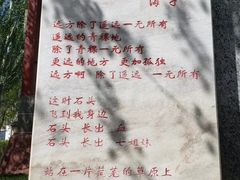 海子
远方除了遥远一无所有
遥远的青稞地
除了青稞一无所有
更远的地方 更加孤独
远方啊 除了遥远 一无所有
这时石头
飞到我身边
石头 长出 血
石头 长出 七姐妹
站在一片荒芜的草原上